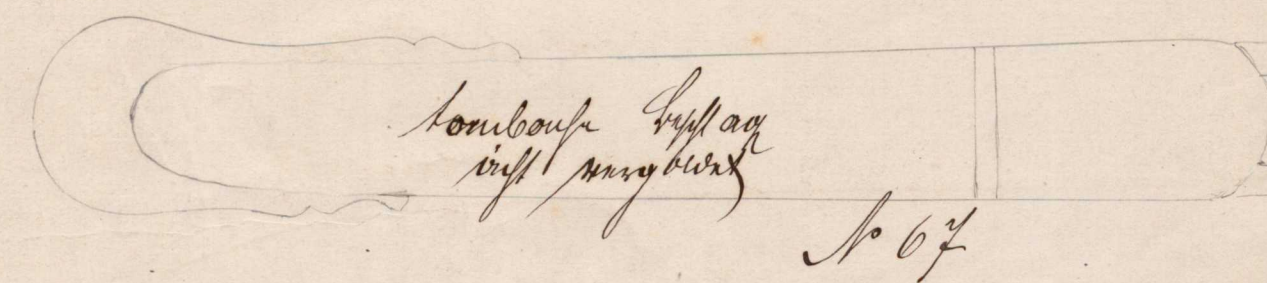 tombache Beschlag
ächt vergoldet
No 67